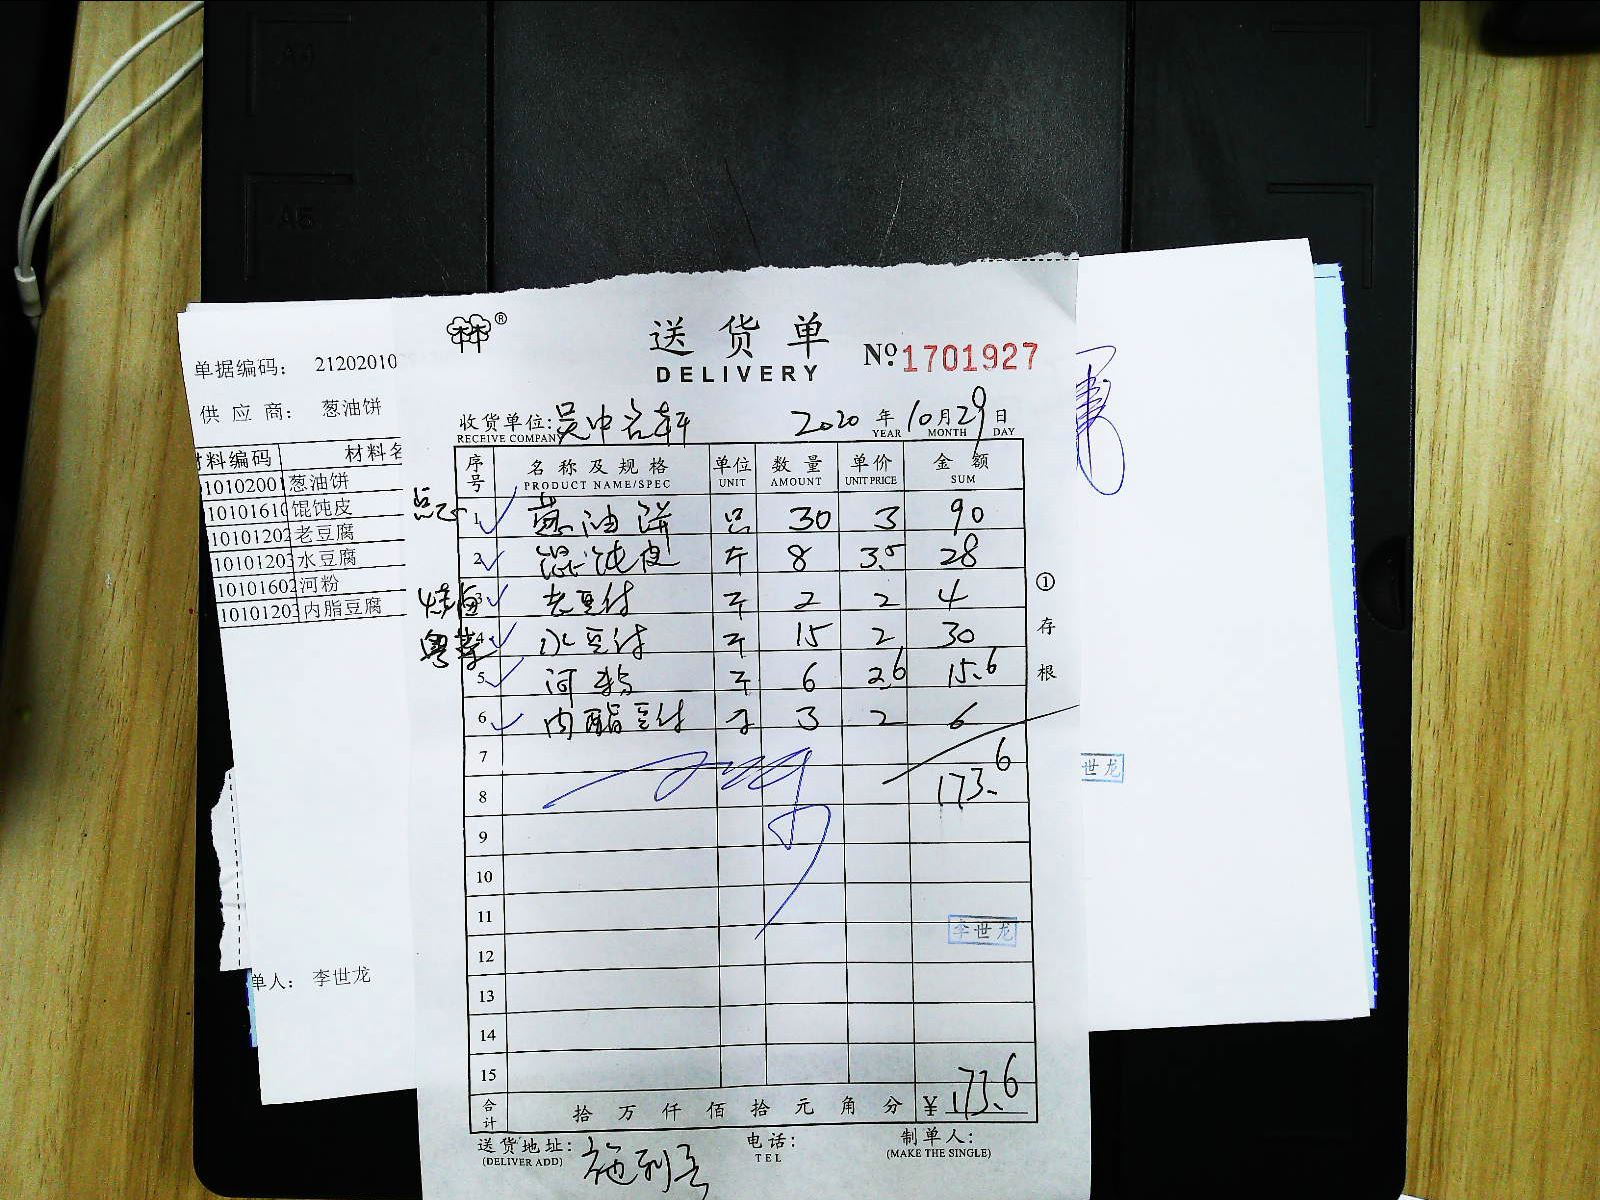 A4
A5
单据编码： 21202010
供 应 商： 葱油饼
材料编码 材料名
10102001 葱油饼
10101610 馄饨皮
10101202 老豆腐
10101203 水豆腐
10101602 河粉
10101203 内脂豆腐
单人： 李世龙
®
送货单
DELIVERY
Nº 1701927
收货单位: 吴中
RECEIVE COMPANY
2020 年 10 月 29 日
YEAR MONTH DAY
序号 名称及规格 单位 数量 单价 金额
PRODUCT NAME/SPEC UNIT AMOUNT UNIT PRICE SUM
点心 1 葱油饼 只 30 3 90
2 馄饨皮 斤 8 3.5 28
3 老豆付 斤 2 2 4
粤菜 4 水豆付 斤 15 2 30
5 河粉 斤 6 2.6 15.6
6 内酯豆付 3 2 6
7
8 173.6
9
10
11
12
13
14
15
李世龙
合计 拾 万 仟 佰 拾 元 角 分 ¥ 173.6
送货地址: 电话: 制单人:
(DELIVER ADD) TEL (MAKE THE SINGLE)
① 存根
世龙